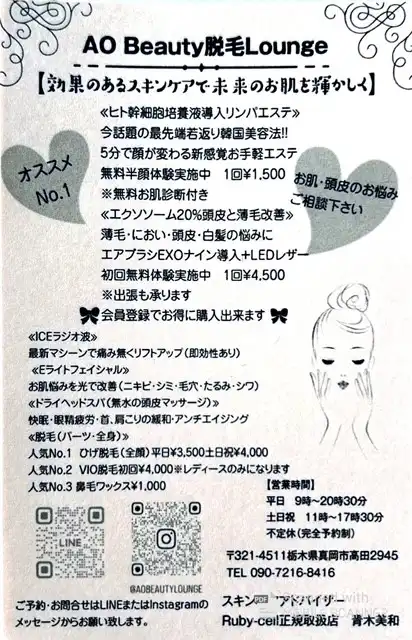 AO Beauty脱毛Lounge
【効果のあるスキンケアで未来のお肌を輝かしく】
≪ヒト幹細胞培養液導入リンパエステ≫
今話題の最先端若返り韓国美容法!!
5分で顔が変わる新感覚お手軽エステ
無料半顔体験実施中 1回¥1,500
※無料お肌診断付き
オススメ
No.1
お肌・頭皮のお悩み
ご相談下さい
≪エクソソーム20%頭皮と薄毛改善≫
薄毛・におい・頭皮・白髪の悩みに
エアブラシEXOナイン導入+LEDレザー
初回無料体験実施中 1回¥4,500
※出張も承ります
会員登録でお得に購入出来ます
≪ICEラジオ波≫
最新マシーンで痛み無くリフトアップ(即効性あり)
≪Eライトフェイシャル≫
お肌悩みを光で改善(ニキビ・シミ・毛穴・たるみ・シワ)
≪ドライヘッドスパ(無水の頭皮マッサージ)≫
快眠・眼精疲労・首、肩こりの緩和・アンチエイジング
≪脱毛(パーツ・全身)≫
人気No.1 ひげ脱毛(全顔)平日¥3,500土日祝¥4,000
人気No.2 VIO脱毛初回¥4,000※レディースのみになります
人気No.3 鼻毛ワックス¥1,000
【営業時間】
平日 9時～20時30分
土日祝 11時～17時30分
不定休(完全予約制)
LINE
@AOBEAUTYLOUNGE
〒321-4511栃木県真岡市高田2945
TEL 090-7216-8416
ご予約・お問合せはLINEまたはInstagramの
メッセージからお願い致します。
スキン アドバイザー
Ruby-cell正規取扱店 青木美和